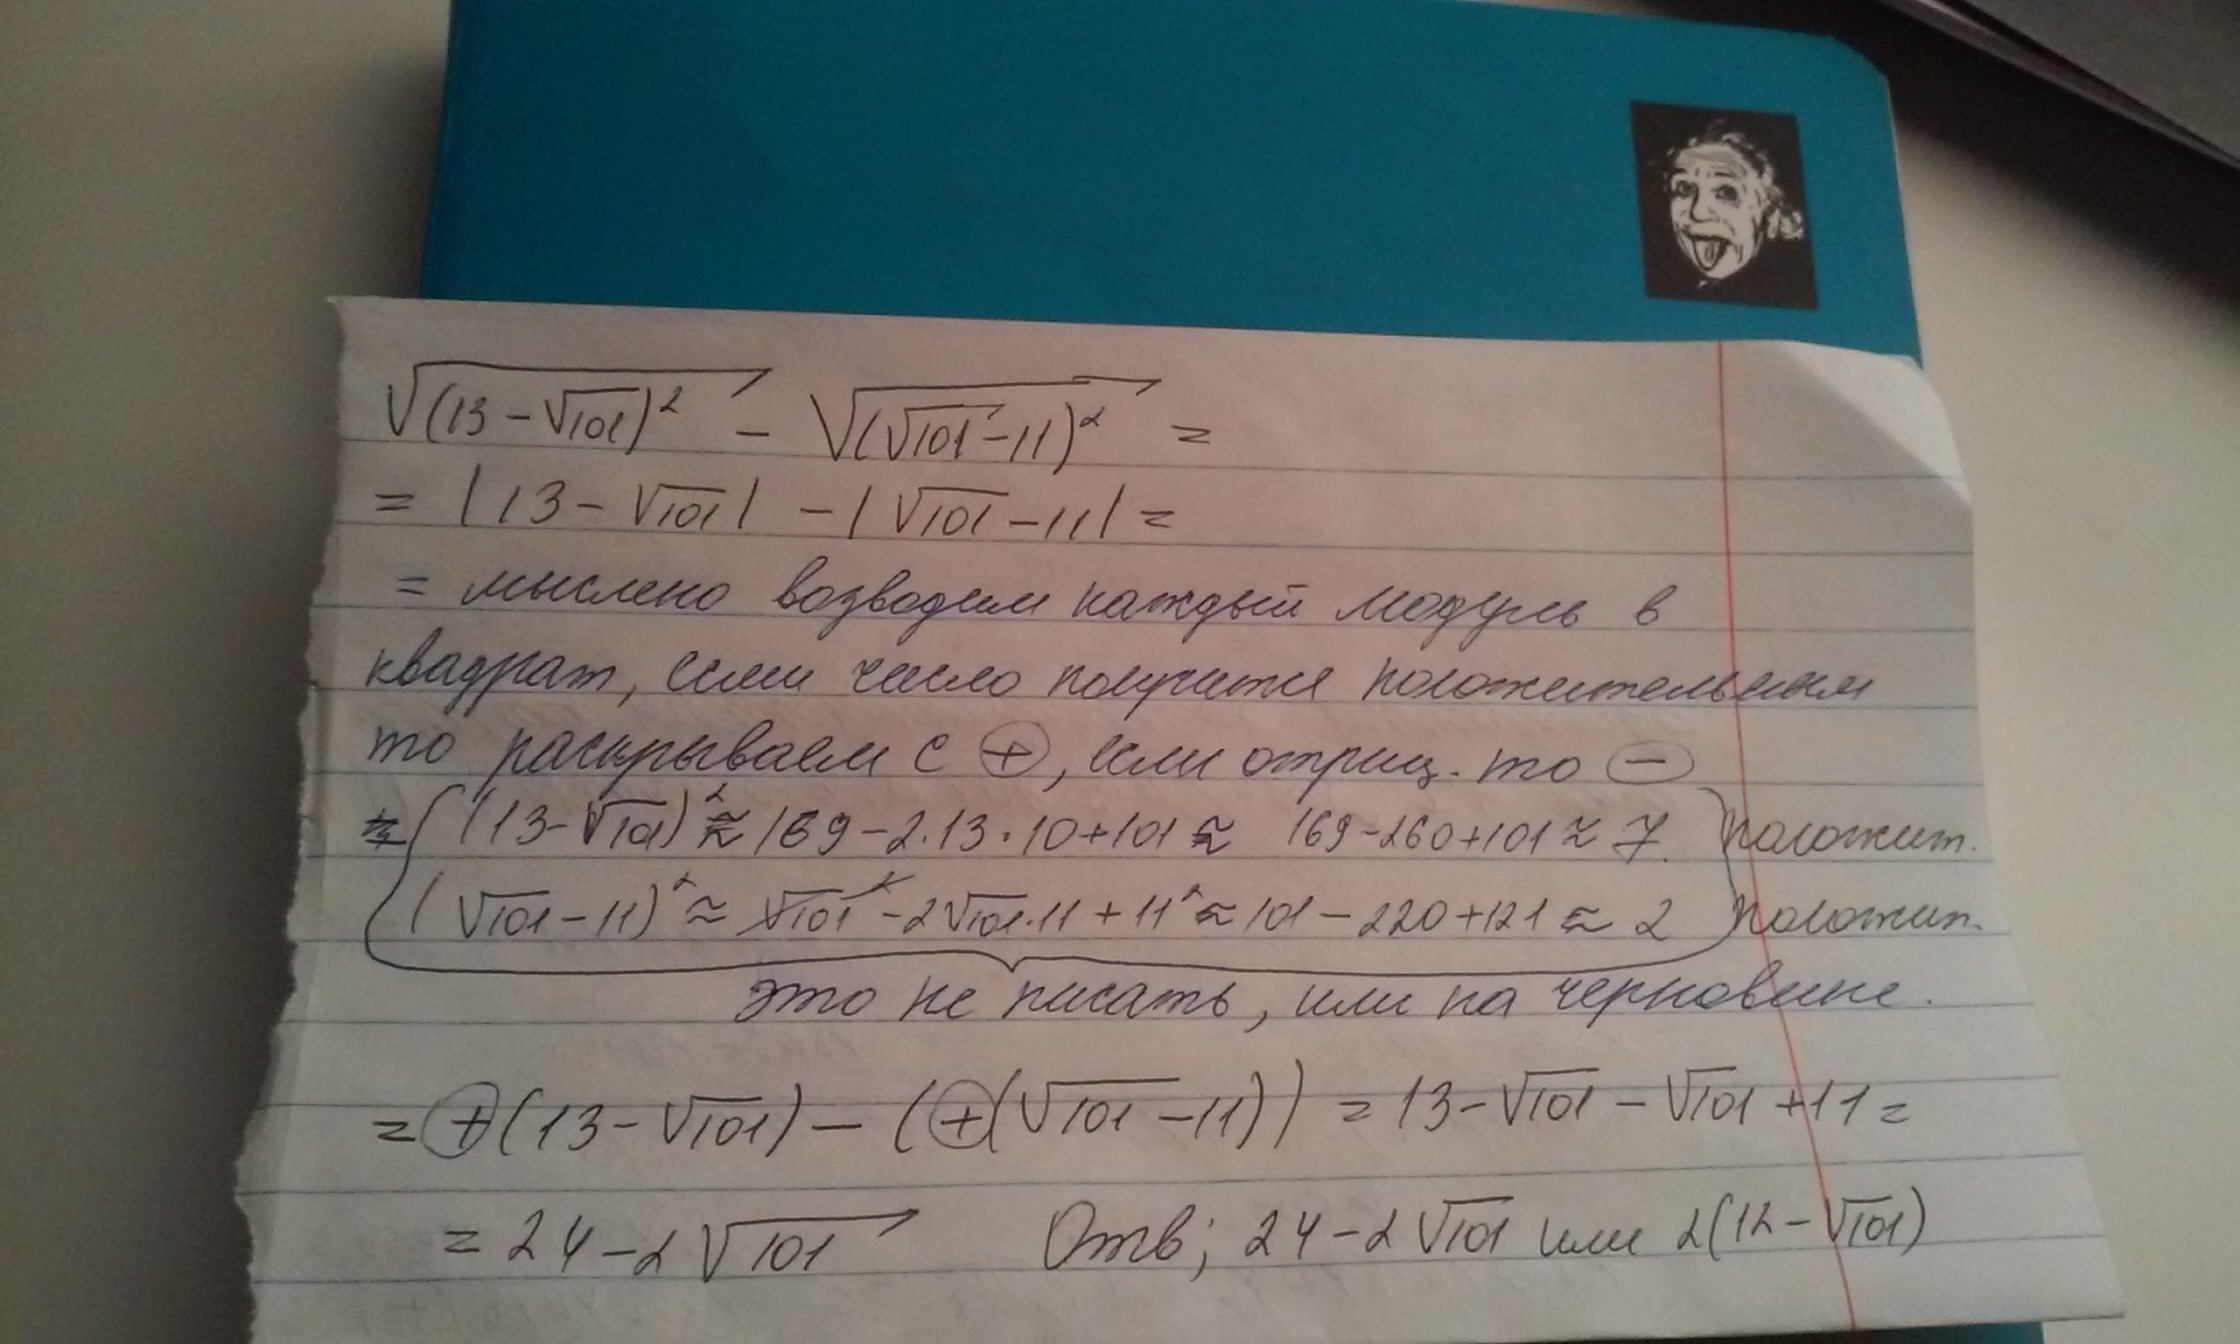 √(13-√101)² - √(√101-11)² =
= |13-√101| - |√101-11| =
= мыслено возводим каждый модуль в
квадрат, если число получится положительным
то раскрываем с ⊕, если отриц. то ⊖
(13-√101)² ≈ 169-2·13·10+101 ≈ 169-260+101 ≈ 7. положит.
(√101-11)² ≈ √101² - 2√101·11 + 11² ≈ 101-220+121 ≈ 2 положит.
это не писать, или на черновике.
= ⊕(13-√101) - (⊕(√101-11)) = 13-√101-√101+11 =
= 24-2√101 Отв; 24-2√101 или 2(12-√101)